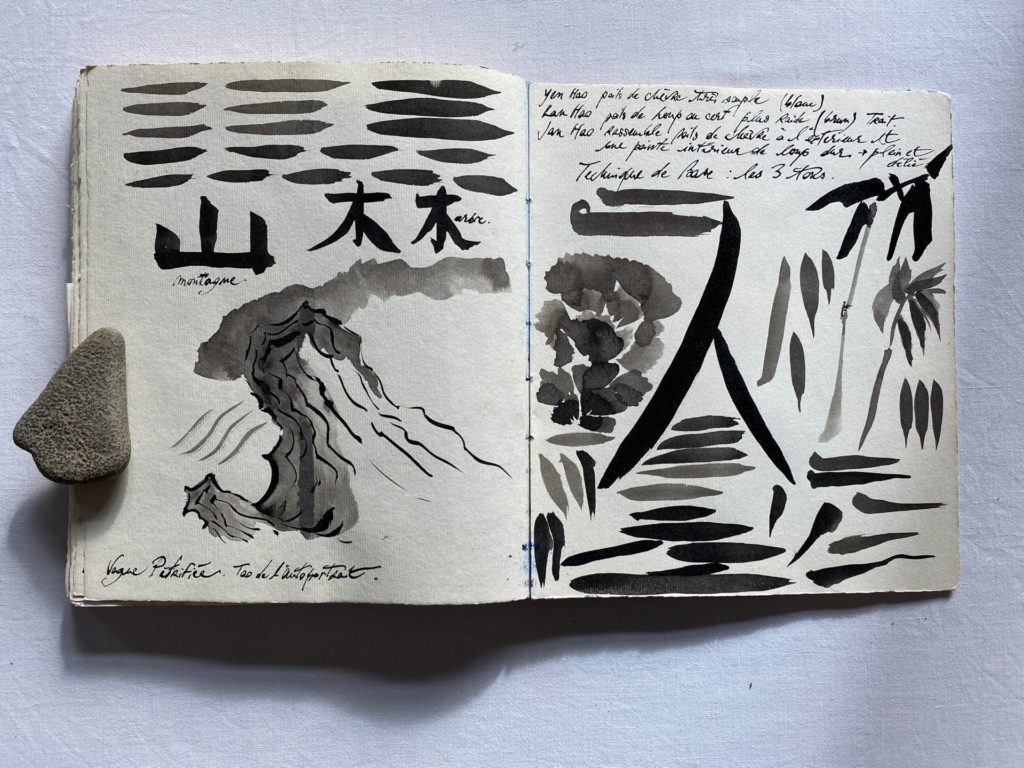 山 木 木
arbre.
montagne
Vague Pétrifiée. Tao de l'autoportrait.
Yen Hao poils de chèvre très souple (blanc)
Lan Hao poils de loup ou cerf plus raide (brun) Trait
Jan Hao Rassemble poils de chèvre à l'extérieur et
une pointe intérieur de loup dur → plein et
délié
Technique de base : les 3 tons.
人